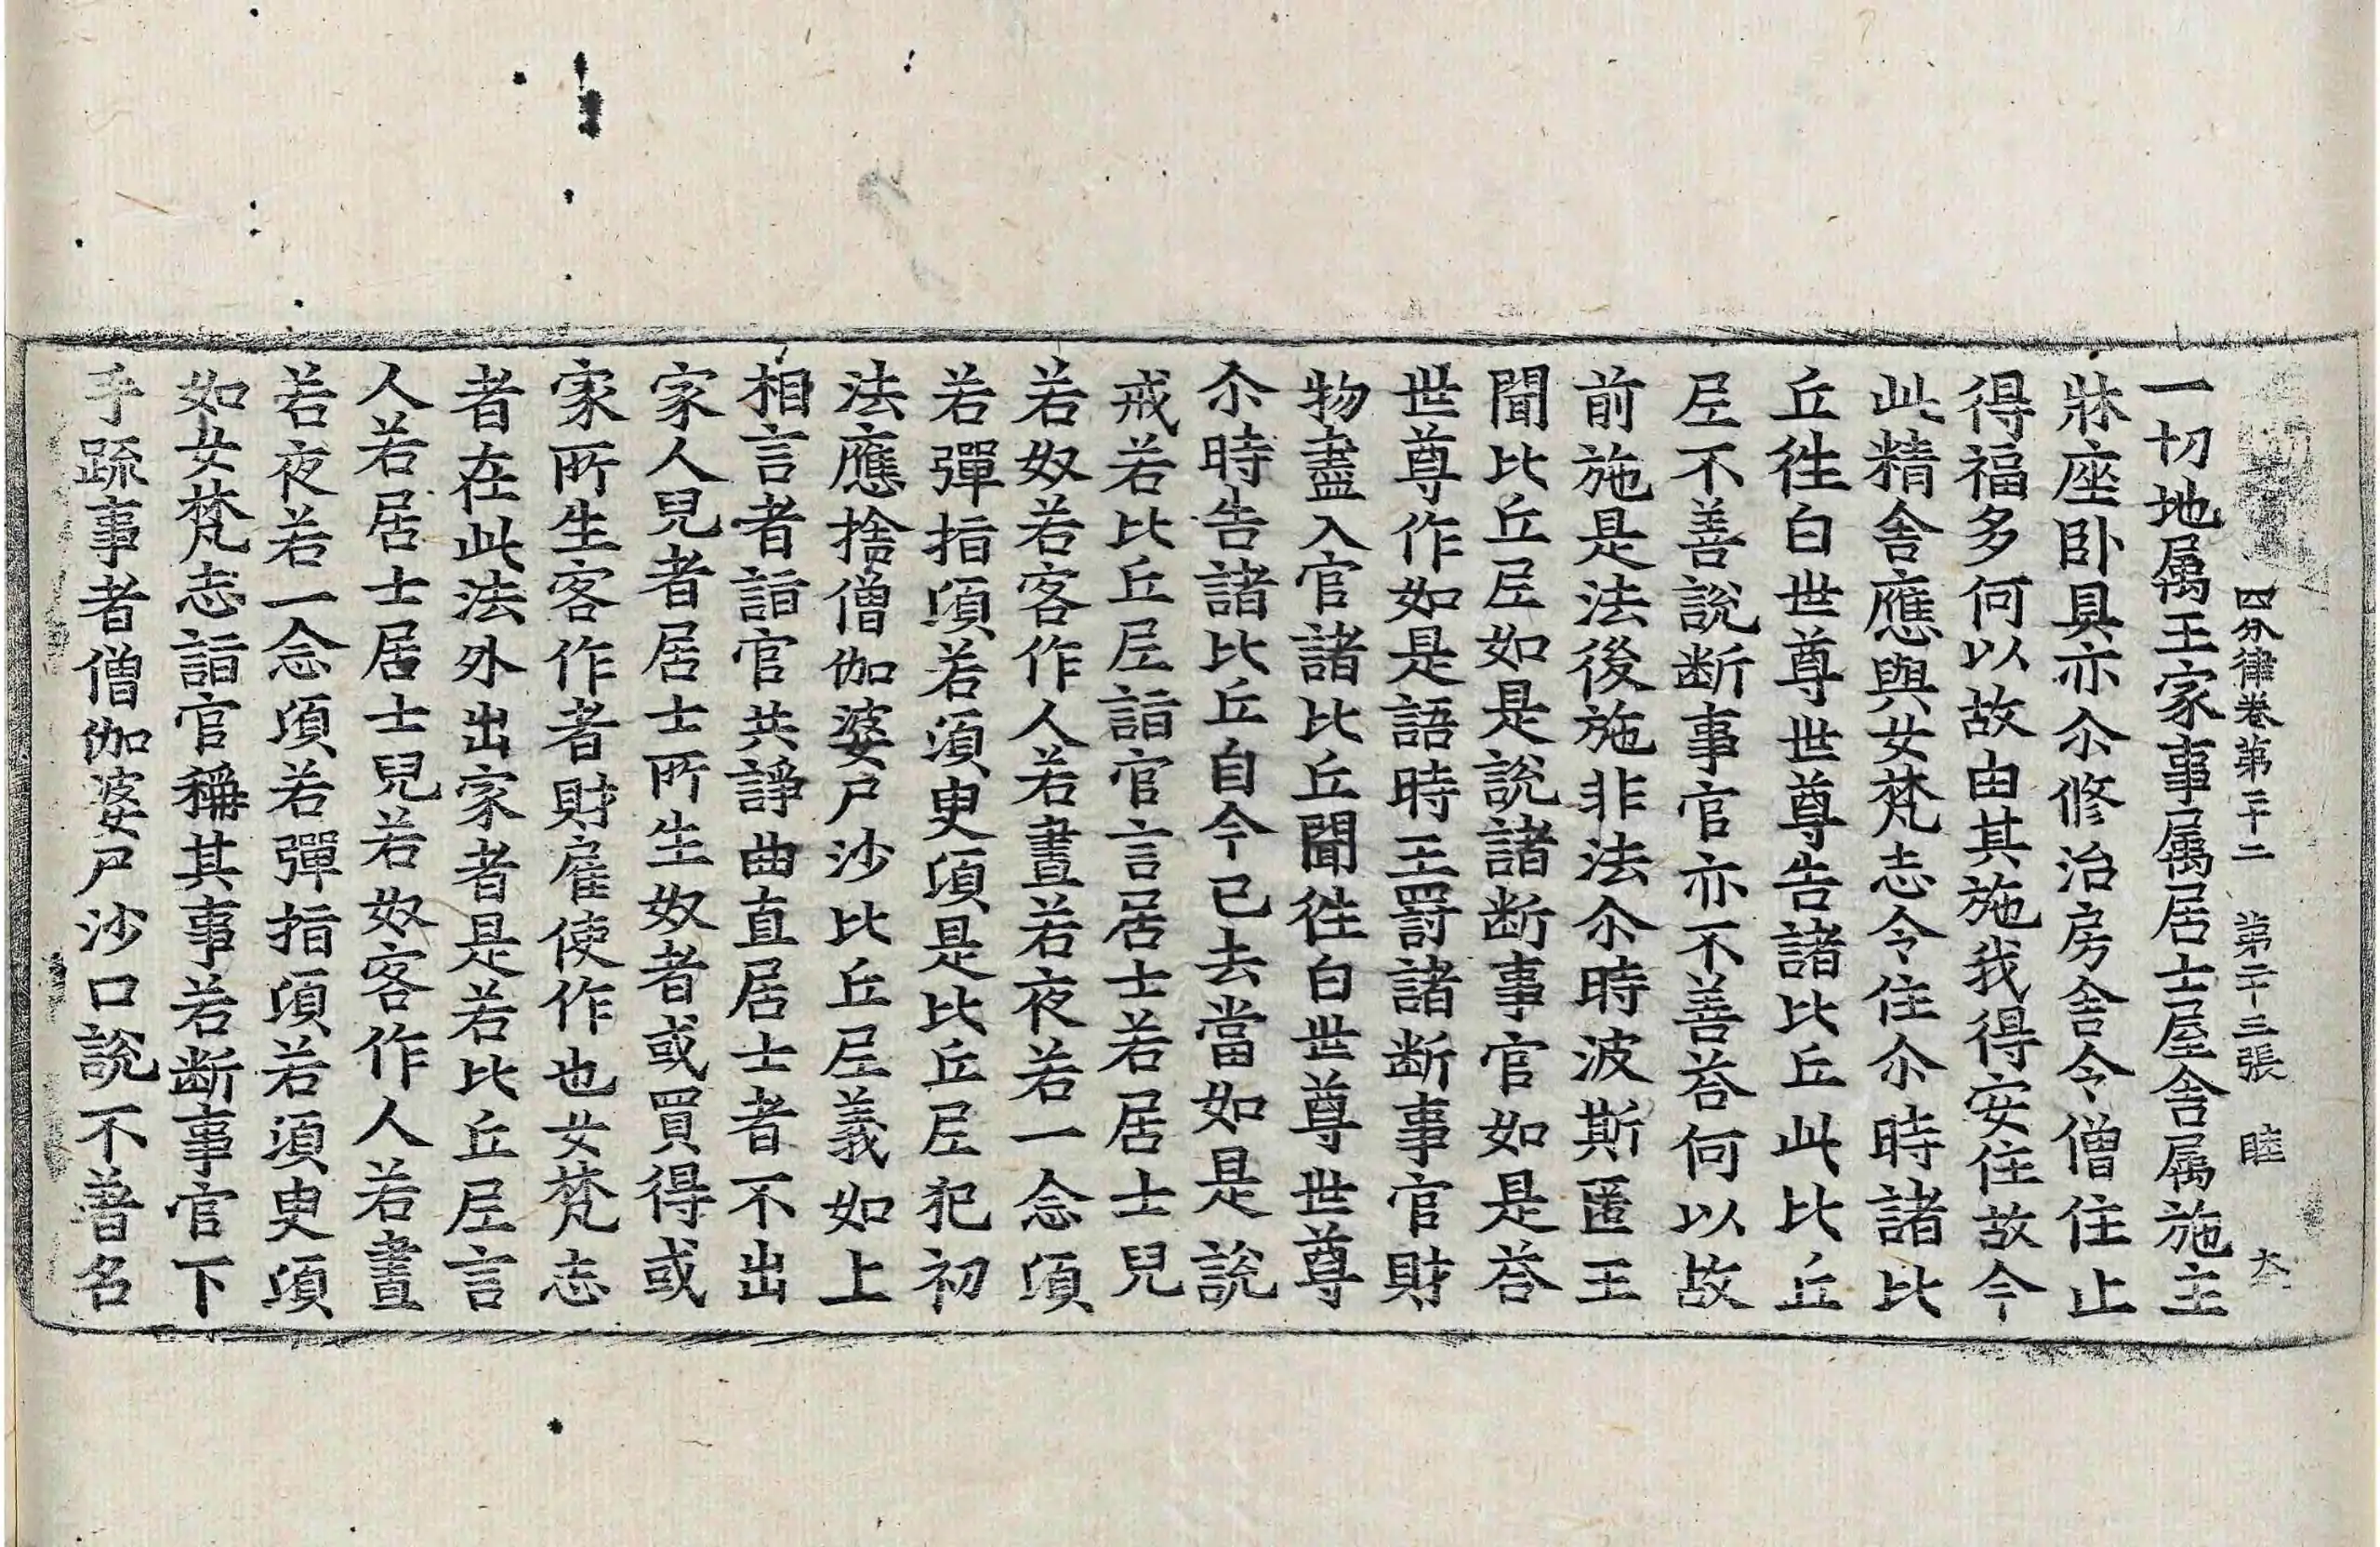 四分律卷第二十二 第二十三張 睦 大
一切地属王家事属居士屋舍属施主
牀座卧具亦尒修治房舍令僧住止
得福多何以故由其施我得安住故今
此精舍應與女梵志令住尒時諸比
丘徃白世尊世尊告諸比丘此比丘
尼不善說断事官亦不善荅何以故
前施是法後施非法尒時波斯匿王
聞比丘尼如是說諸断事官如是荅
世尊作如是語時王罸諸断事官財
物盡入官諸比丘聞徃白世尊世尊
尒時告諸比丘自今已去當如是說
戒若比丘尼詣官言居士若居士兒
若奴若客作人若晝若夜若一念頃
若彈指頃若湏臾頃是比丘尼犯初
法應捨僧伽婆尸沙比丘尼義如上
相言者詣官共諍曲直居士者不出
家人兒者居士所生奴者或買得或
家所生客作者財雇使作也女梵志
者在此法外出家者是若比丘尼言
人若居士居士兒若奴客作人若晝
若夜若一念頃若彈指頃若湏臾頃
如女梵志詣官稱其事若断事官下
手䟽事者僧伽婆尸沙口說不著名